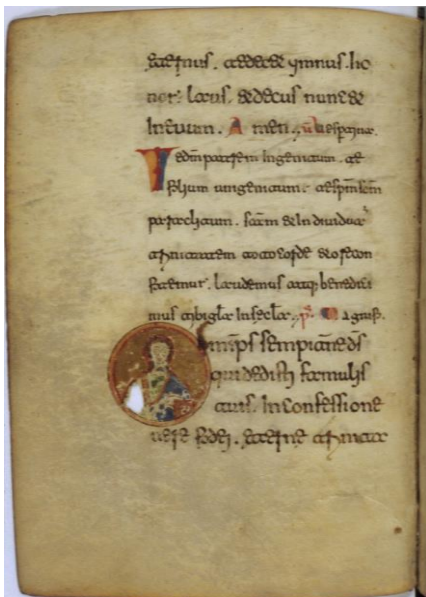 nor. laus. & decus nunc &
in euum. Amen.
Te dm patrem ingenitum. te
filium unigenitum. te spm scm
paraclitum. scam & indiuidua
trinitatem toto corde & ore con
fitemur. laudemus atq; benedici
mus tibi gla in secla. Magnif.
Omps sempiterne ds
qui dedisti famulis
tuis. In confessione
uere fidei. eterne trinita